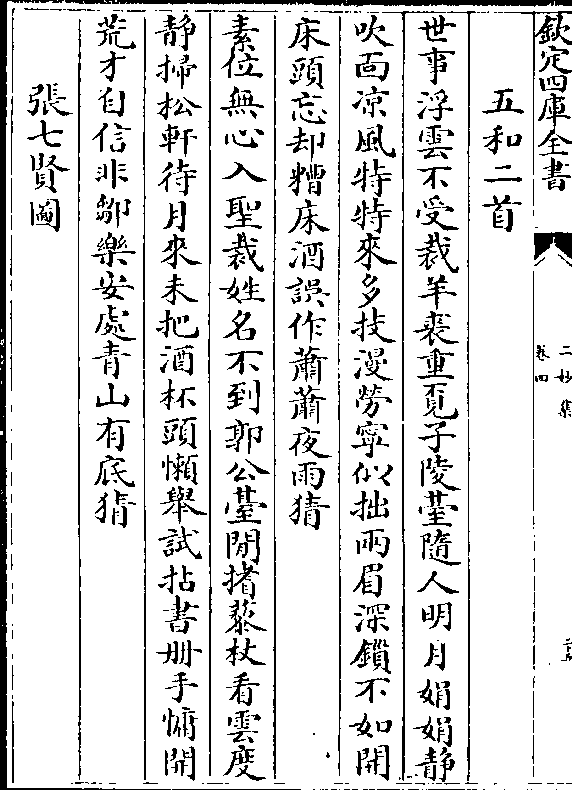 欽定四庫全書
二妙集
卷四
五和二首
世事浮雲不受裁羊裘重覓子陵臺隨人明月娟娟静
吹面凉風特特來多技漫勞寧似拙兩眉深鎖不如開
床頭忘却糟床酒誤作蕭蕭夜雨猜
素位無心入聖裁姓名不到郭公臺閒撦藜杖看雲度
静掃松軒待月來未把酒杯頭懶舉試拈書册手慵開
荒才自信非鄒樂安處青山有底猜
張七賢圖